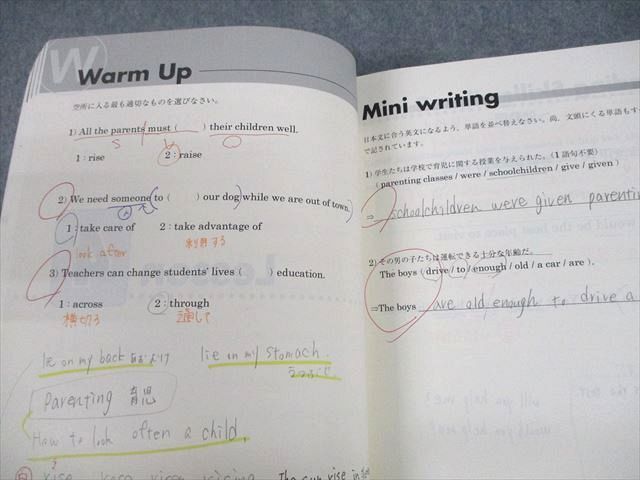 W
Warm Up
空所に入る最も適切なものを選びなさい。
1) All the parents must (　　) their children well.
S V O
1 : rise　2 : raise
2) We need someone to (　　) our dog while we are out of town.
1 : take care of　2 : take advantage of
look after　利用する
3) Teachers can change students' lives (　　) education.
1 : across　2 : through
横切る　通して
lie on my back あおむけ　lie on my stomach.
うつぶせ
Parenting 育児
How to look often a child.
rise
The sun rise in
Mini writing
日本文に合う英文になるよう、単語を並べ替えなさい。尚、文頭にくる単語も
で記されています。
1) 学生たちは学校で育児に関する授業を与えられた。(1 語句不要)
( parenting classes / were / schoolchildren / give / given )
⇒ schoolchildren were given parenti
2) その男の子たちは運転できる十分な年齢だ。
The boys ( drive / to / enough / old / a car / are ).
⇒The boys are old enough to drive a
will you help me?
would you help me?